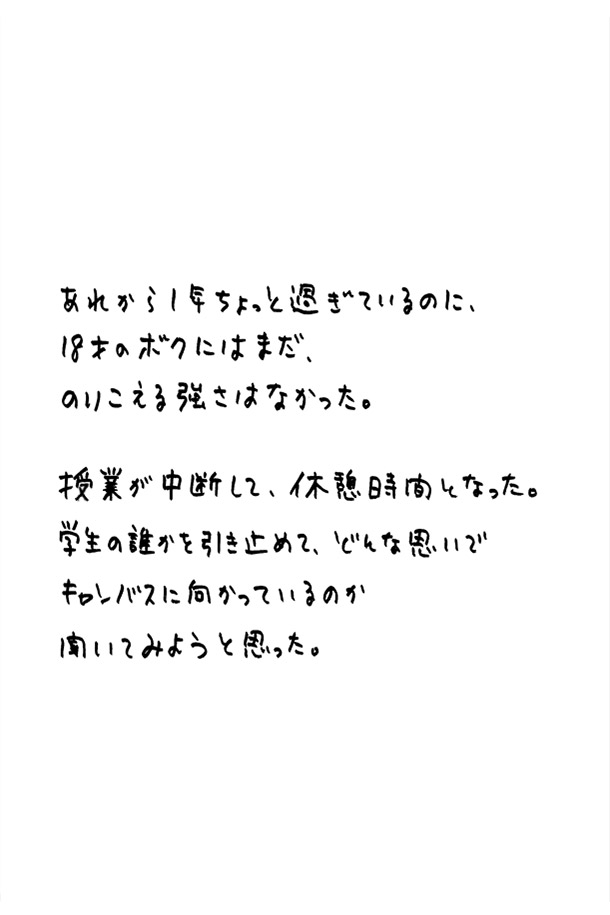 あれから1年ちょっと過ぎているのに、
18才のボクにはまだ、
のりこえる強さはなかった。
授業が中断して、休憩時間となった。
学生の誰かを引き止めて、どんな思いで
キャンバスに向かっているのか
聞いてみようと思った。